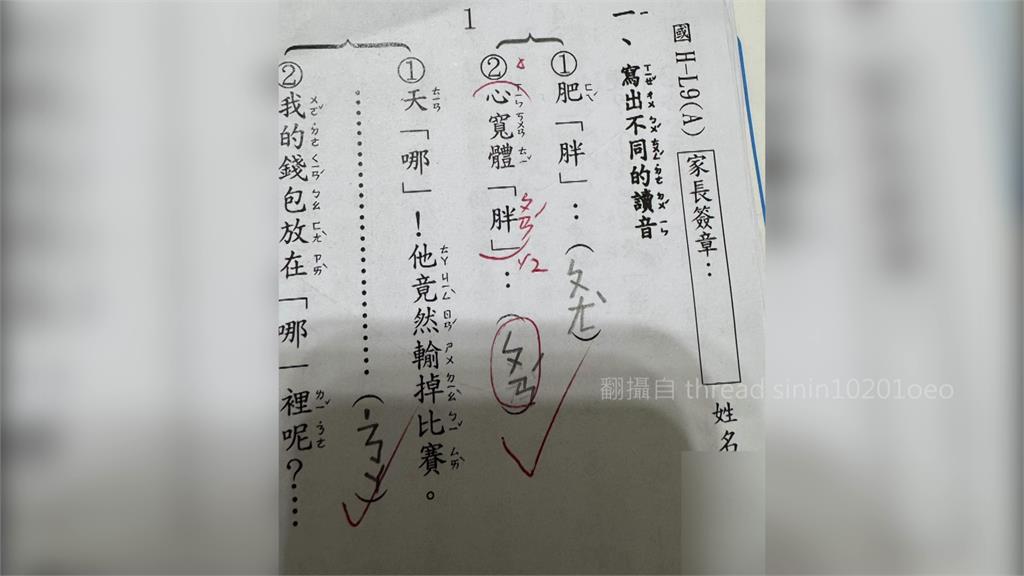 國H-L9(A)
家長簽章：
姓名
一、寫出不同的讀音
1
①肥「胖」：（ㄆㄤˋ）
②心寬體「胖」：（ㄆㄢˊ）
ㄆㄢˊ
①天「哪」！他竟然輸掉比賽。
（˙ㄋㄚ）
②我的錢包放在「哪」裡呢？
翻攝自 thread sinin10201oeo